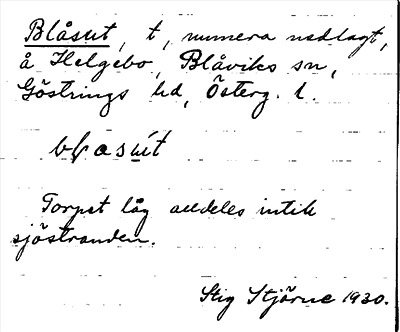 Blåsut, t, numera nedlagt,
å Helgebo, Blåviks sn,
Göstrings hd, Österg. l.
Torpet låg alldeles intill
sjöstranden.
Stig Stjärne 1930.